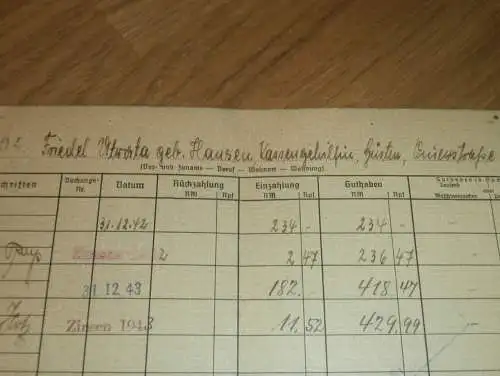 Friedel geb. Hansen, Kassengehilfin, Güsten,
(Vor- und Zuname — Beruf — Wohnort — Wohnung)
schriften Buchungs- Nr. Datum Rückzahlung RM Rpf Einzahlung RM Rpf Guthaben RM Rpf
31.12.42 234 - 234 -
2 2 47 236 47
31.12.43 182 - 418 47
Zinsen 1943 11 52 429 99